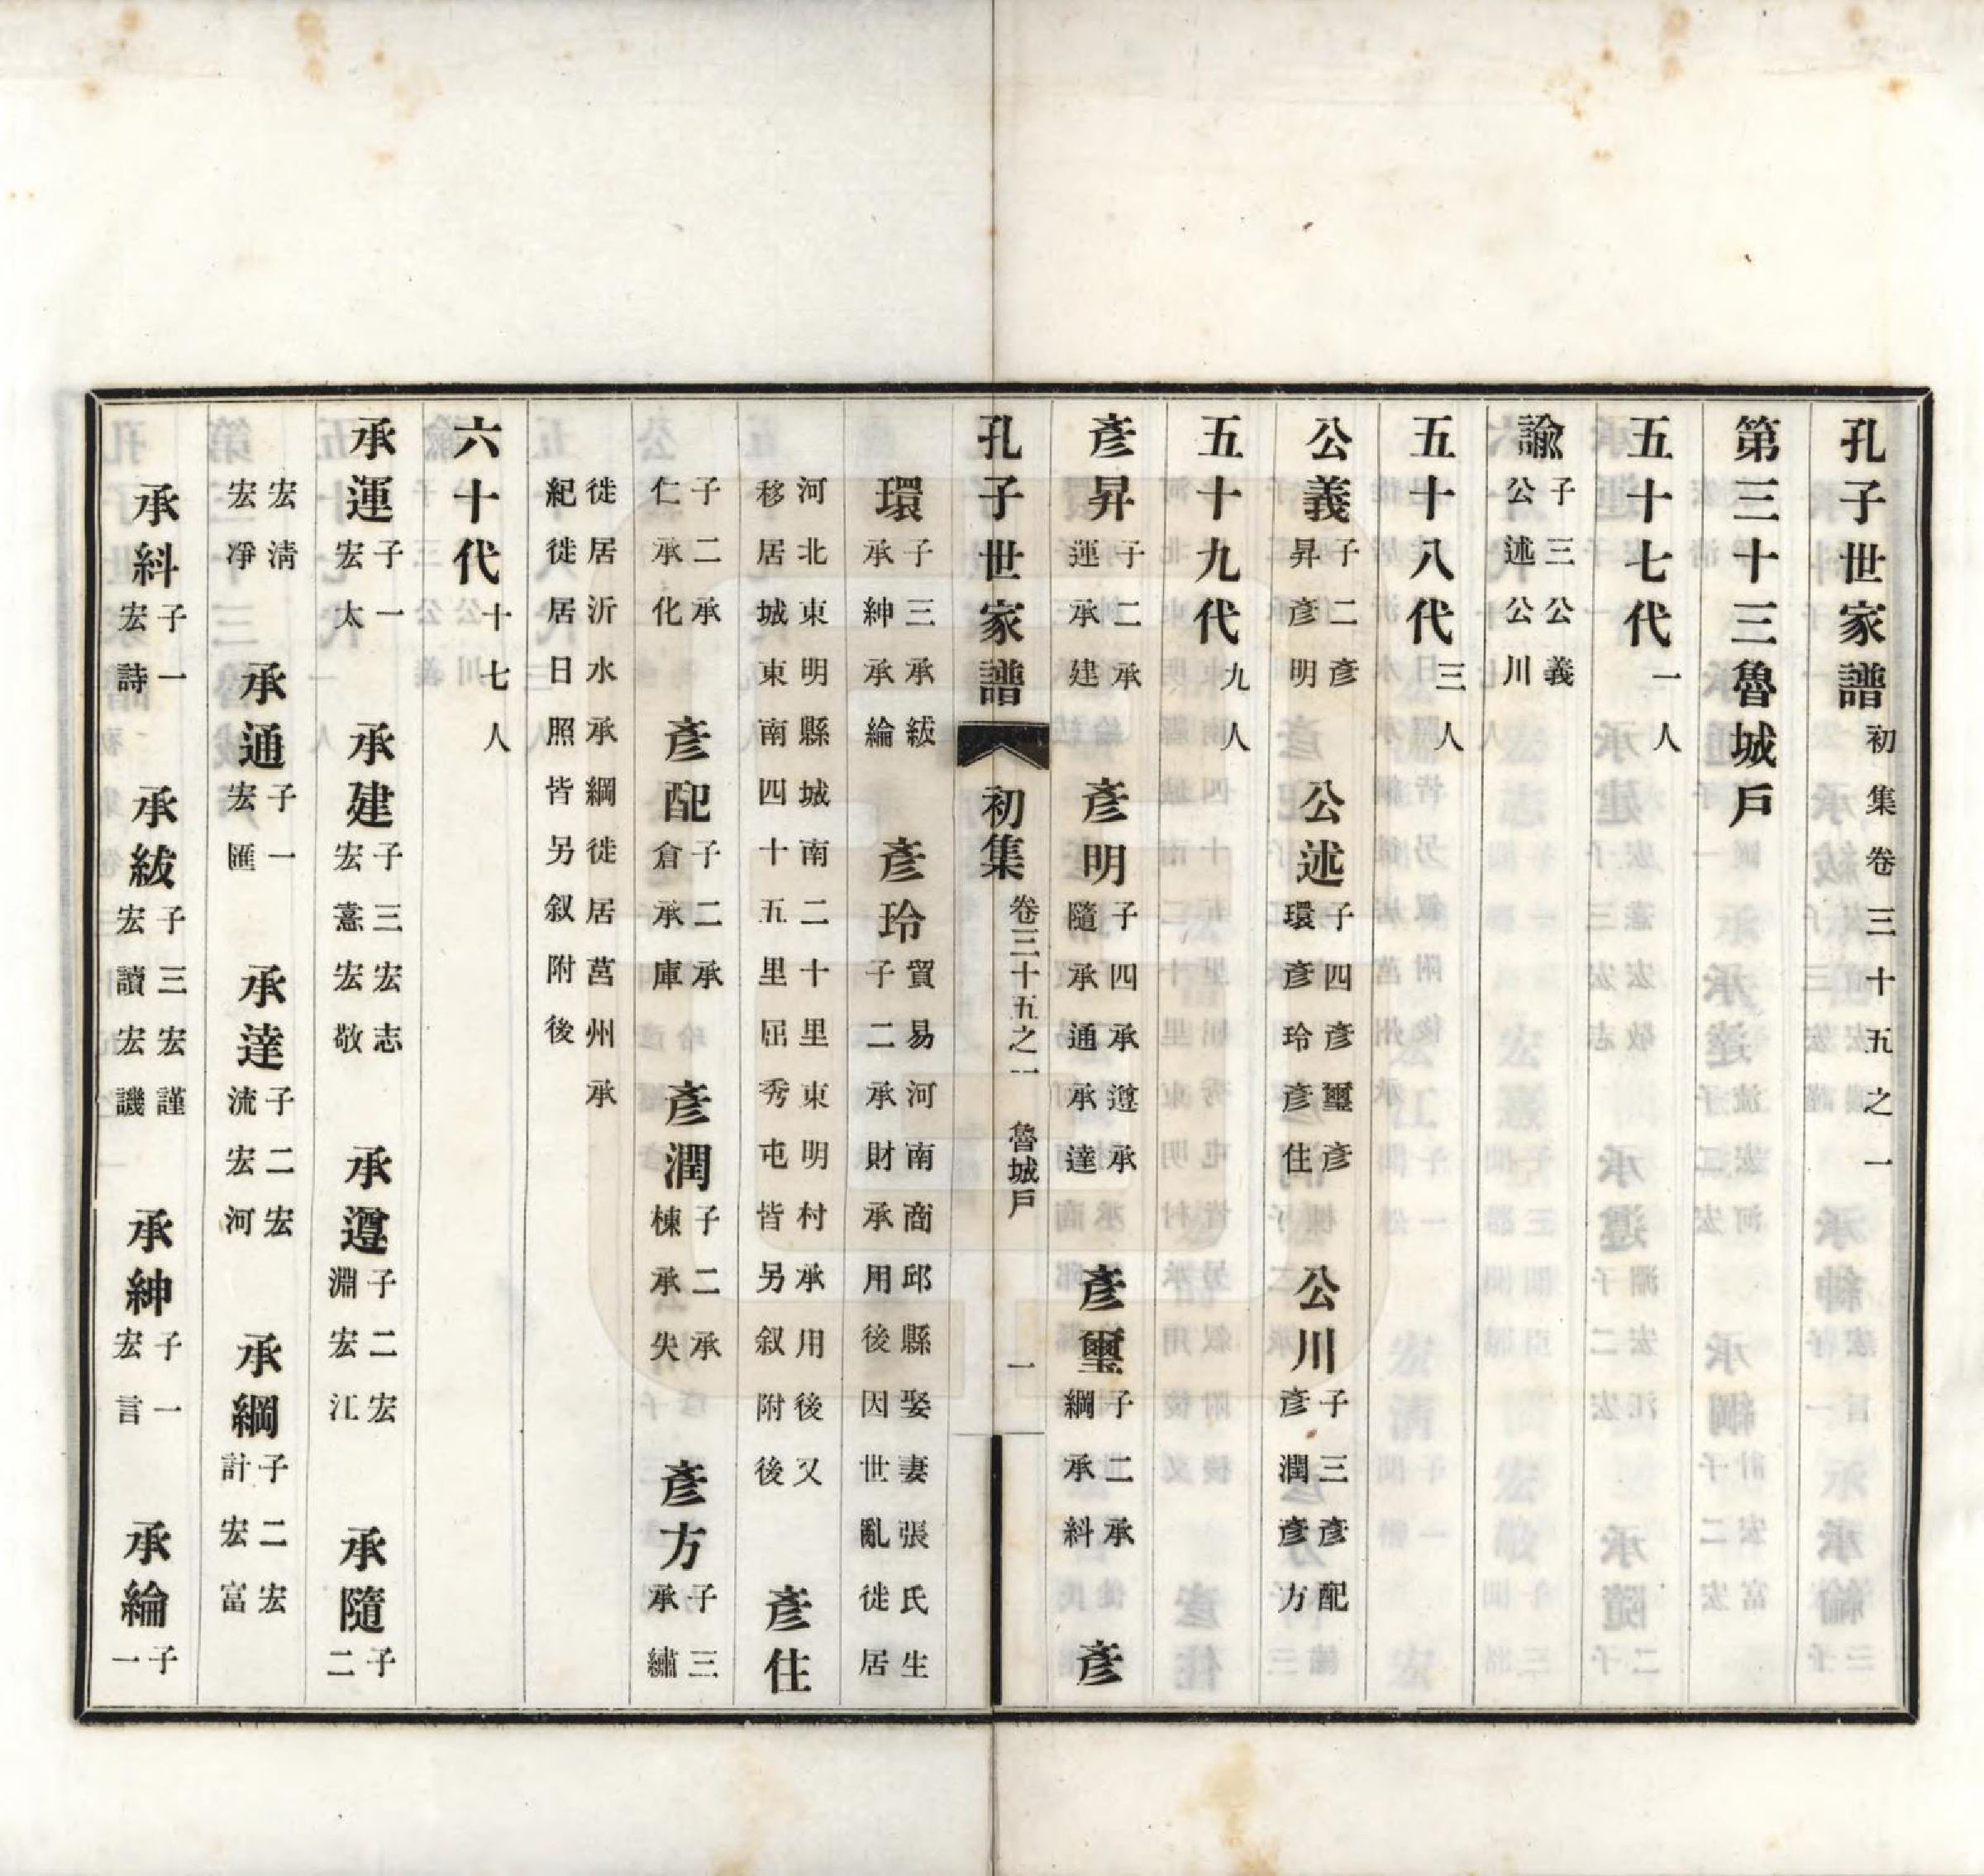 孔子世家譜初集卷三十五之一
第三十三魯城戶
五十七代一人
諭子三公義公述公川
五十八代三人
公義子二彥昇彥明　公述子四彥璽彥環彥玲彥住　公川子三彥配彥潤彥方
五十九代九人
彥昇子二承運承建　彥明子四承遵承隨承通承達　彥璽子二承綱承糾　彥
孔子世家譜　初集　卷三十五之一　魯城戶　一
環子三承紱承紳承綸　彥玲貿易河南商邱縣娶妻張氏生子二承財承用後因世亂徙居
河北東明縣城南二十里東明村承用後又移居城東南四十五里屈秀屯皆另叙附後　彥住
子二承仁承化　彥配子二承倉承庫　彥潤子二承棟承失　彥方子三承繡
徙居沂水承綱徙居莒州承紀徙居日照皆另叙附後
六十代十七人
承運子一宏太　承建子三宏志宏藼宏敬　承遵子二宏淵宏江　承隨子二
宏清宏凈　承通子一宏匯　承達子二宏流宏河　承綱子二宏計宏富
承糾子一宏詩　承紱子三宏謹宏讀宏譏　承紳子一宏言　承綸子一